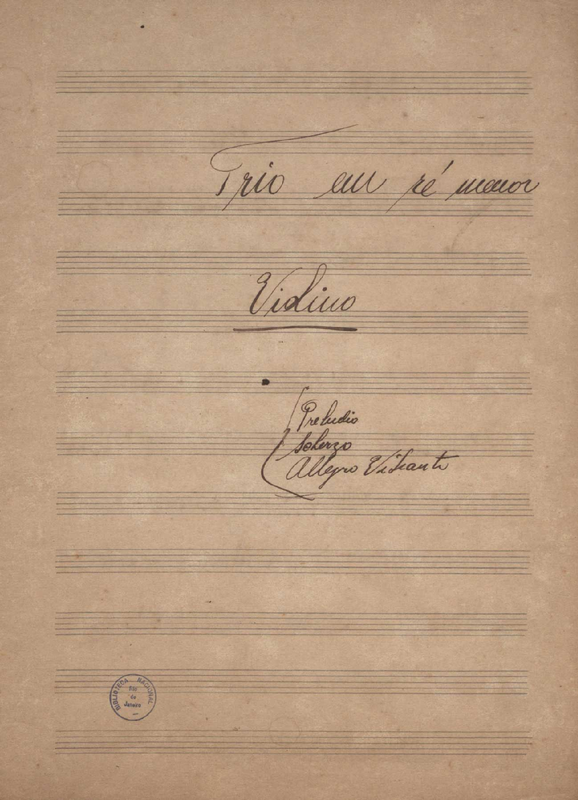 Trio em ré menor
Violino
Preludio
Scherzo
Allegro Vibrante
BIBLIOTECA NACIONAL
Rio
de
Janeiro